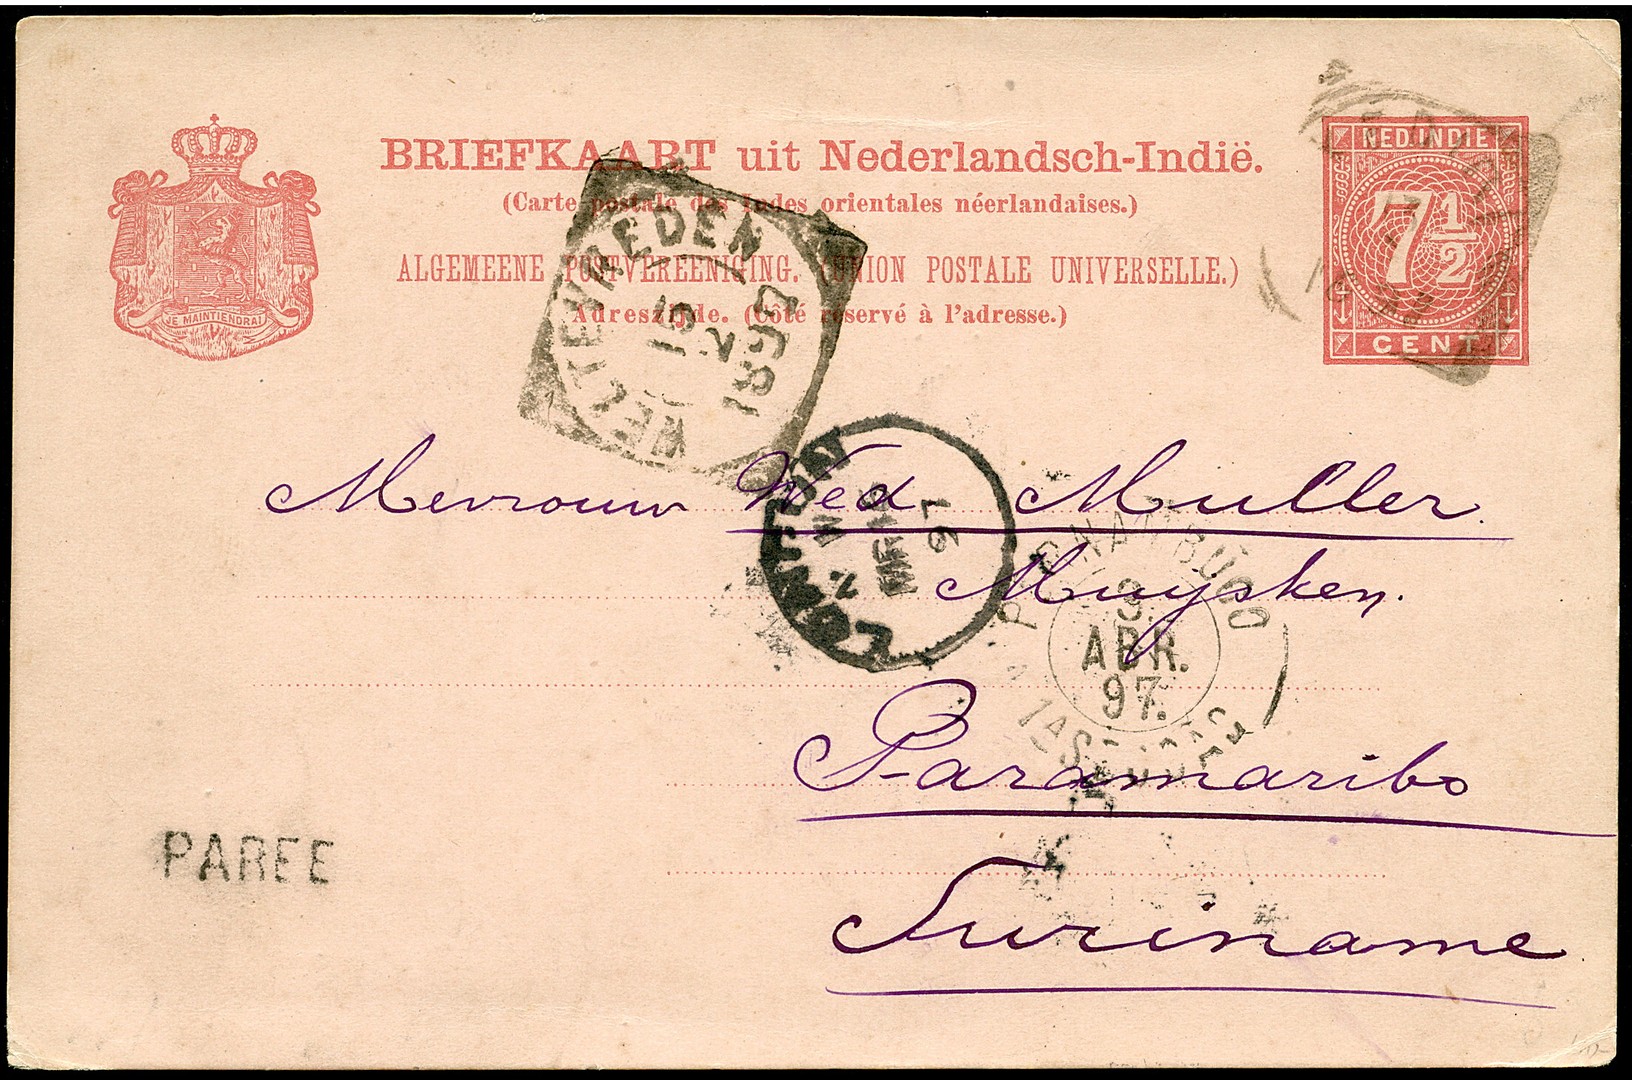 BRIEFKAART uit Nederlandsch-Indië.
(Carte postale des Indes orientales néerlandaises.)
ALGEMEENE POSTVEREENIGING. (UNION POSTALE UNIVERSELLE.)
Adreszijde. (Côté réservé à l'adresse.)
JE MAINTIENDRAI
NED. INDIE
7½
CENT
WELTEVREDEN
15
2
1897
Mevrouw Wed Muller
Muysken.
Paramaribo
Suriname
LONDON
97
PERNAMBUCO
3
ABR.
97.
1ª
PAREE